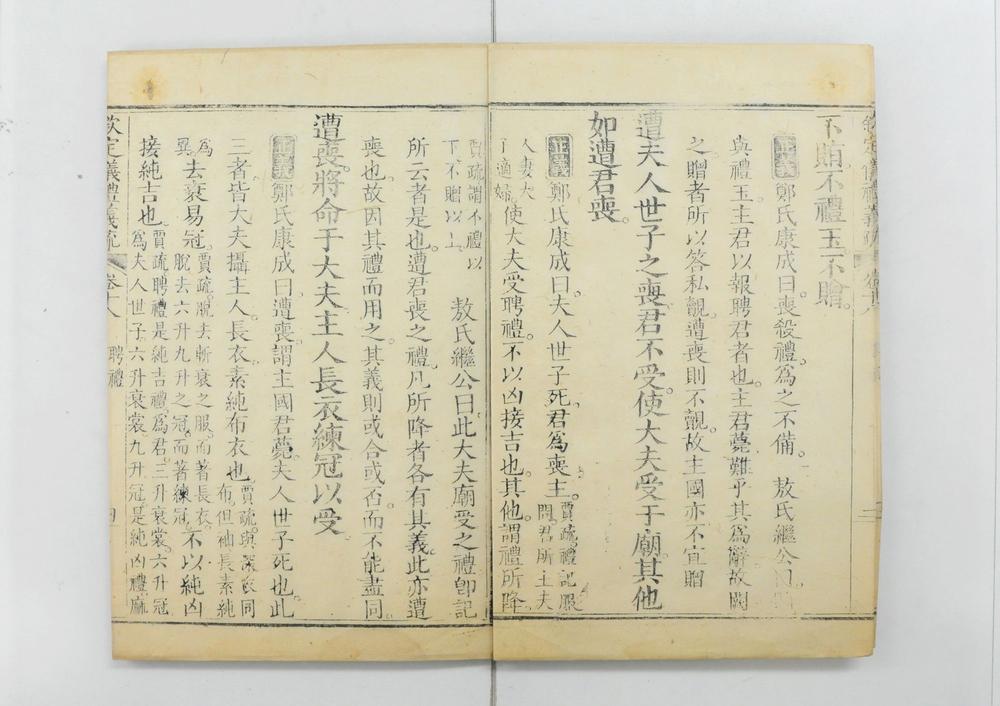 不賄不禮玉不贈
正義鄭氏康成曰喪殺禮爲之不備 敖氏繼公曰
與禮玉主君以報聘君者也主君薨難乎其爲辭故闕
之贈者所以答私覿遭喪則不覿故主國亦不宜贈
遭夫人世子之喪君不受使大夫受于廟其他
如遭君喪
正義鄭氏康成曰夫人世子死君爲喪主
賈疏禮記服
問君所主夫
人妻大
子適婦
使大夫受聘禮不以凶接吉也其他謂禮所降
賈疏謂不禮以
下不贈以上
敖氏繼公曰此大夫廟受之禮卽記
所云者是也遭君喪之禮凡所降者各有其義此亦遭
喪也故因其禮而用之其義則或合或否而不能盡同
遭喪將命于大夫主人長衣練冠以受
正義鄭氏康成曰遭喪謂主國君薨夫人世子死也此
三者皆大夫攝主人長衣素純布衣也
賈疏與深衣同
布但袖長素純
爲
異
去衰易冠
賈疏脫去斬衰之服而著長衣
脫去六升九升之冠而著練冠
不以純凶
接純吉也
賈疏聘禮是純吉禮爲君三升衰裳六升冠
爲夫人世子六升衰裳九升冠是純凶禮麻
欽定義禮義疏 卷十八 聘禮